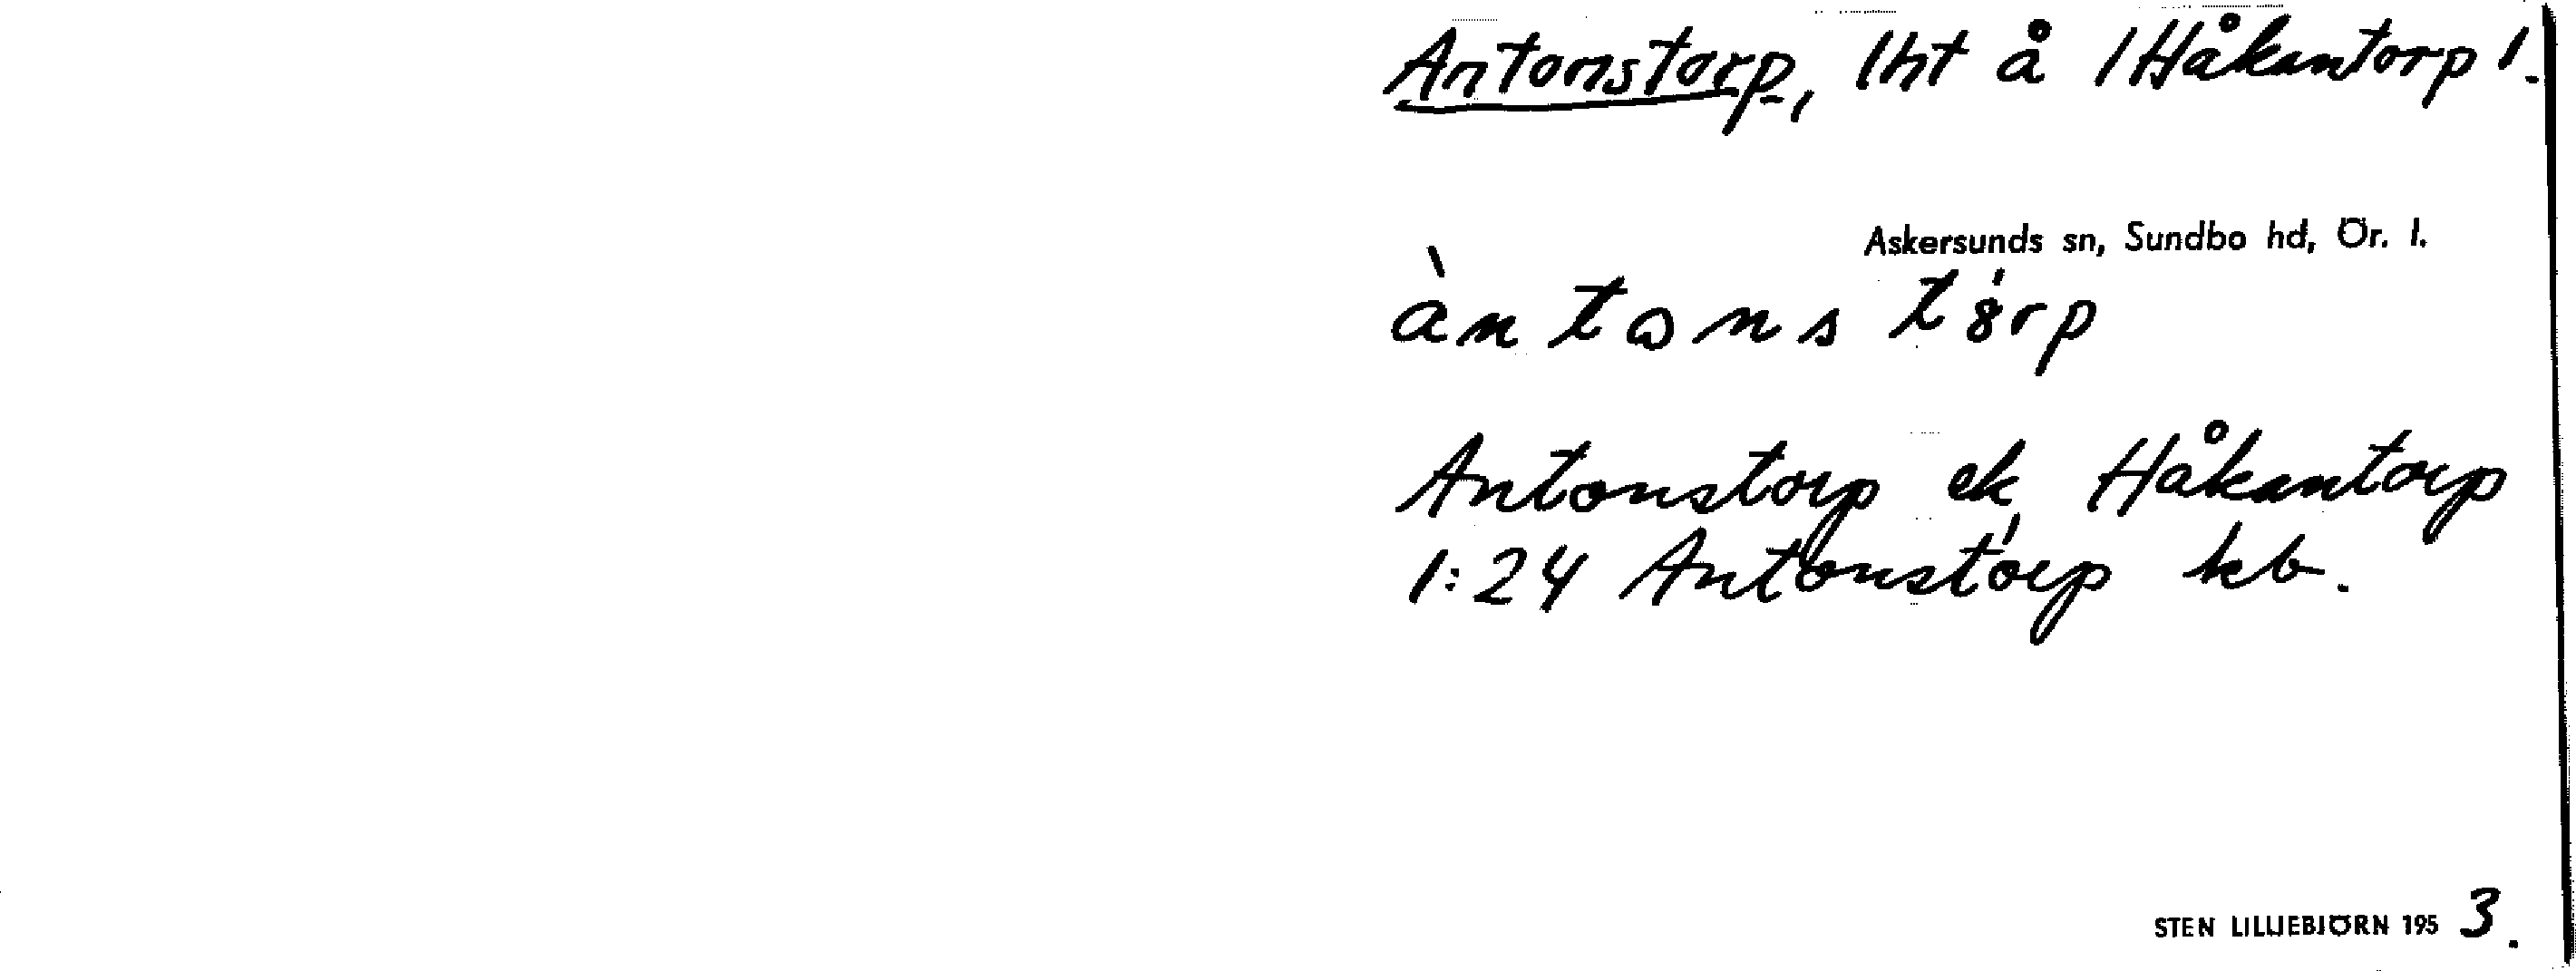 Antonstorp, lht å /Håkantorp/.
Askersunds sn, Sundbo hd, Ör. l.
àntωnstó̤rp
Antonstorp ek Håkantorp
1:24 Antonstórp kb.
STEN LILLIEBJÖRN 1953.